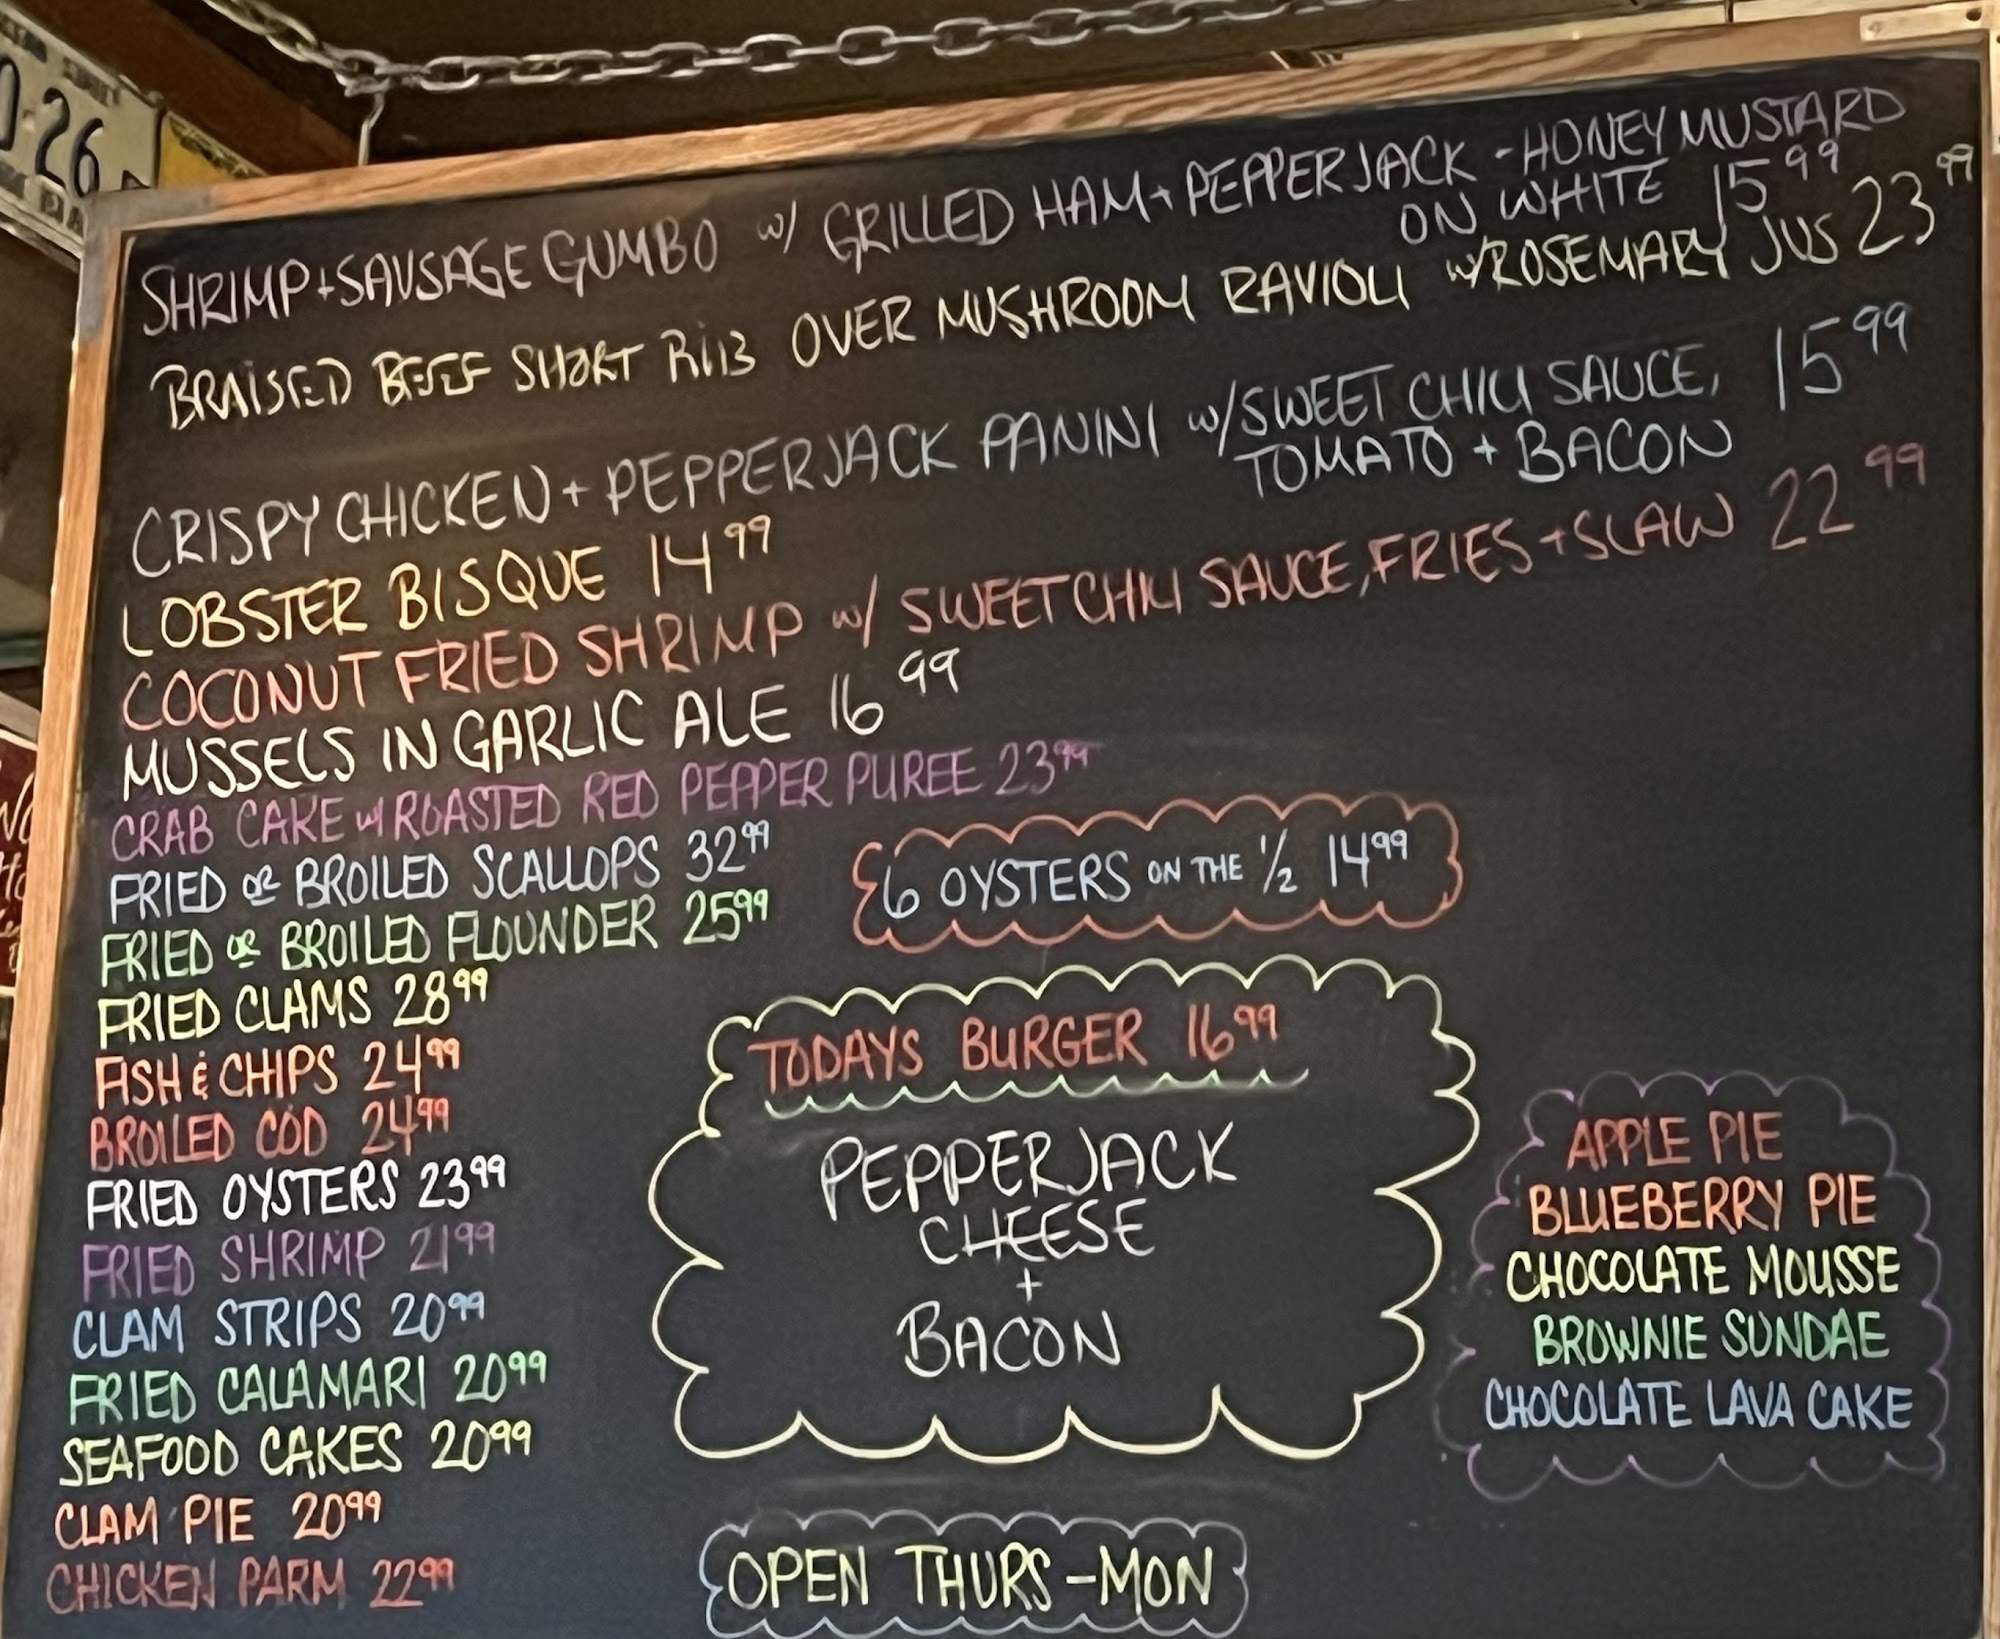 SHRIMP+SAUSAGE GUMBO w/ GRILLED HAM+PEPPERJACK - HONEY MUSTARD
ON WHITE 15 99
BRAISED BEEF SHORT RIB OVER MUSHROOM RAVIOLI w/ROSEMARY JUS 23 99
CRISPY CHICKEN + PEPPERJACK PANINI w/SWEET CHILI SAUCE, 15 99
TOMATO + BACON
LOBSTER BISQUE 14 99
COCONUT FRIED SHRIMP w/ SWEET CHILI SAUCE, FRIES + SLAW 22 99
MUSSELS IN GARLIC ALE 16 99
CRAB CAKE w/ ROASTED RED PEPPER PUREE 23 99
FRIED OR BROILED SCALLOPS 32 99
FRIED OR BROILED FLOUNDER 25 99
FRIED CLAMS 28 99
FISH & CHIPS 24 99
BROILED COD 24 99
FRIED OYSTERS 23 99
FRIED SHRIMP 21 99
CLAM STRIPS 20 99
FRIED CALAMARI 20 99
SEAFOOD CAKES 20 99
CLAM PIE 20 99
CHICKEN PARM 22 99
6 OYSTERS ON THE 1/2 14 99
TODAYS BURGER 16 99
PEPPERJACK
CHEESE
+
BACON
OPEN THURS - MON
APPLE PIE
BLUEBERRY PIE
CHOCOLATE MOUSSE
BROWNIE SUNDAE
CHOCOLATE LAVA CAKE
26